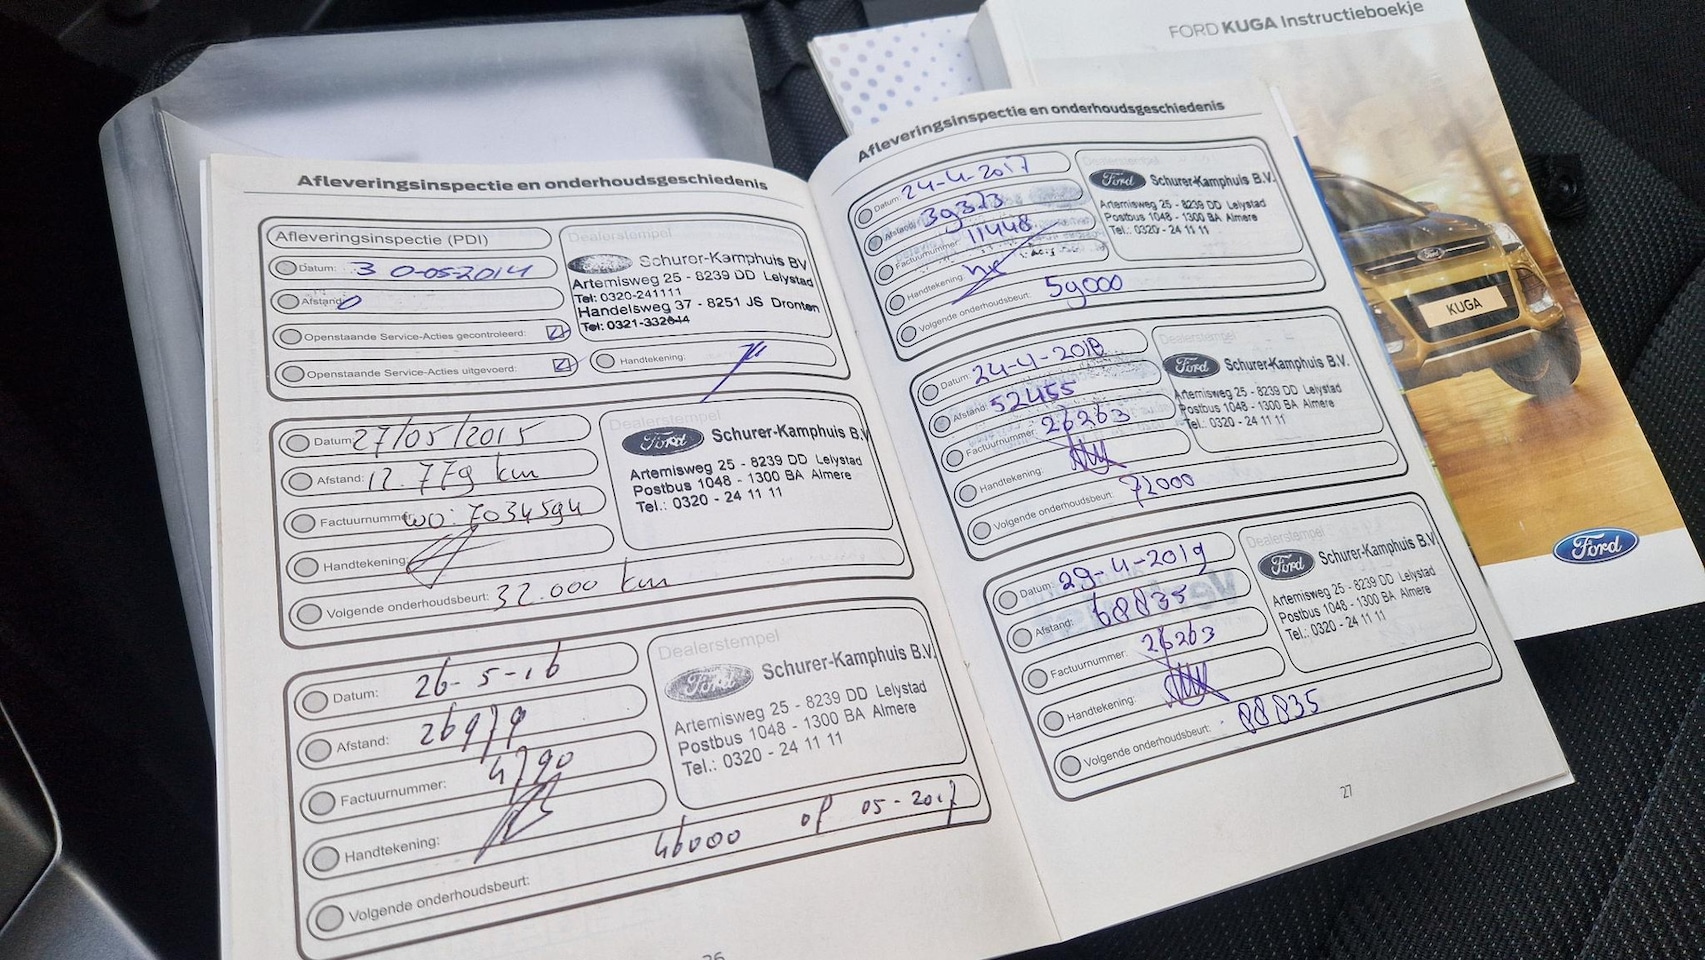 FORD KUGA Instructieboekje
Afleveringsinspectie en onderhoudsgeschiedenis
Afleveringsinspectie (PDI)
Datum: 30-05-2014
Afstand: 0
Openstaande Service-Acties gecontroleerd:
Openstaande Service-Acties uitgevoerd:
Dealerstempel
Schurer-Kamphuis BV
Artemisweg 25 - 8239 DD Lelystad
Tel: 0320-241111
Handelsweg 37 - 8251 JS Dronten
Tel: 0321-332644
Handtekening:
Datum: 27/05/2015
Afstand: 12.779 km
Factuurnummer: wo: 7034594
Handtekening:
Volgende onderhoudsbeurt: 32.000 km
Dealerstempel
Ford Schurer-Kamphuis B.V.
Artemisweg 25 - 8239 DD Lelystad
Postbus 1048 - 1300 BA Almere
Tel.: 0320 - 24 11 11
Datum: 26-5-16
Afstand: 26979
Factuurnummer: 4790
Handtekening:
Volgende onderhoudsbeurt: 46000 of 05-2017
Dealerstempel
Ford Schurer-Kamphuis B.V.
Artemisweg 25 - 8239 DD Lelystad
Postbus 1048 - 1300 BA Almere
Tel.: 0320 - 24 11 11
26
Afleveringsinspectie en onderhoudsgeschiedenis
Datum: 24-4-2017
Afstand: 39373
Factuurnummer: 11448
Handtekening:
Volgende onderhoudsbeurt: 59000
Dealerstempel
Ford Schurer-Kamphuis B.V.
Artemisweg 25 - 8239 DD Lelystad
Postbus 1048 - 1300 BA Almere
Tel.: 0320 - 24 11 11
Datum: 24-4-2018
Afstand: 52455
Factuurnummer: 26263
Handtekening:
Volgende onderhoudsbeurt: 72000
Dealerstempel
Ford Schurer-Kamphuis B.V.
Artemisweg 25 - 8239 DD Lelystad
Postbus 1048 - 1300 BA Almere
Tel.: 0320 - 24 11 11
Datum: 29-4-2019
Afstand: 68835
Factuurnummer: 26263
Handtekening:
Volgende onderhoudsbeurt: 88835
Dealerstempel
Ford Schurer-Kamphuis B.V.
Artemisweg 25 - 8239 DD Lelystad
Postbus 1048 - 1300 BA Almere
Tel.: 0320 - 24 11 11
27
Ford
KUGA
Ford